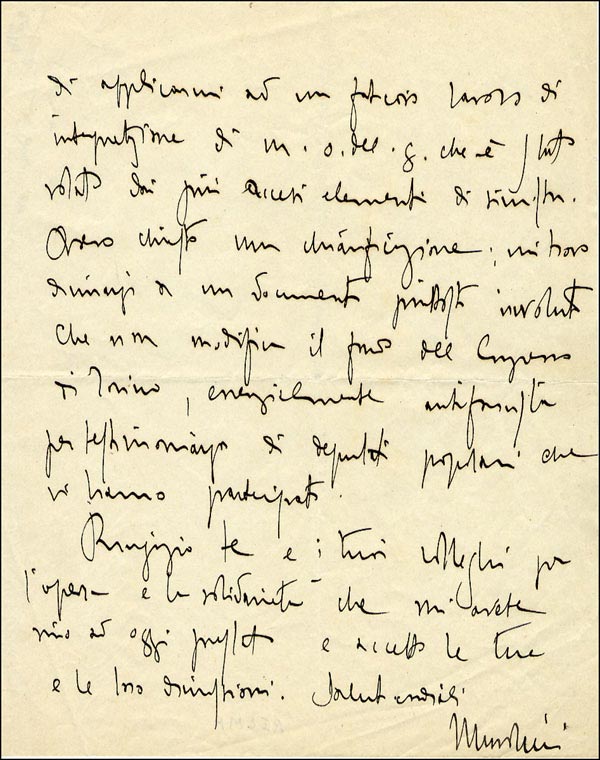 di applicarmi ad un faticoso lavoro di
interpretazione di un o. del. g. che è stato
votato dai più accesi elementi di sinistra.
Avevo chiesto una chiarificazione; mi trovo
dinanzi a un documento piuttosto involuto
che non modifica il fondo del Congresso
di Torino, essenzialmente antifascista
per testimonianza di deputati popolari che
vi hanno partecipato.
Ringrazio te e i tuoi colleghi per
l'opera e la solidarietà che mi avete
sino ad oggi prestato e accetto le tue
e le loro dimissioni. Saluti cordiali
Mussolini